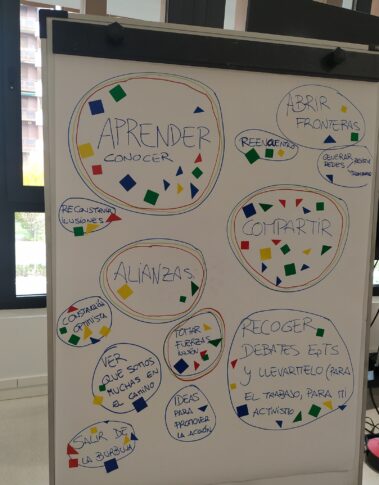 APRENDER
CONOCER
ABRIR
FRONTERAS
REENCUENTRO
GENERAR
REDES
RECONSTRUIR
ILUSIONES
COMPARTIR
ALIANZAS
OPTIMISTA
TOMAR
FUERZAS
VER
QUE SOMOS
MUCHAS EN
EL CAMINO
RECOGER
DEBATES EpTS
Y LLEVÁRTELO (PARA
EL TRABAJO, PARA TI
ACTIVISTO)
IDEAS
PARA
PROMOVER
LA ACCIÓN
SALIR DE
LA BURBUJA